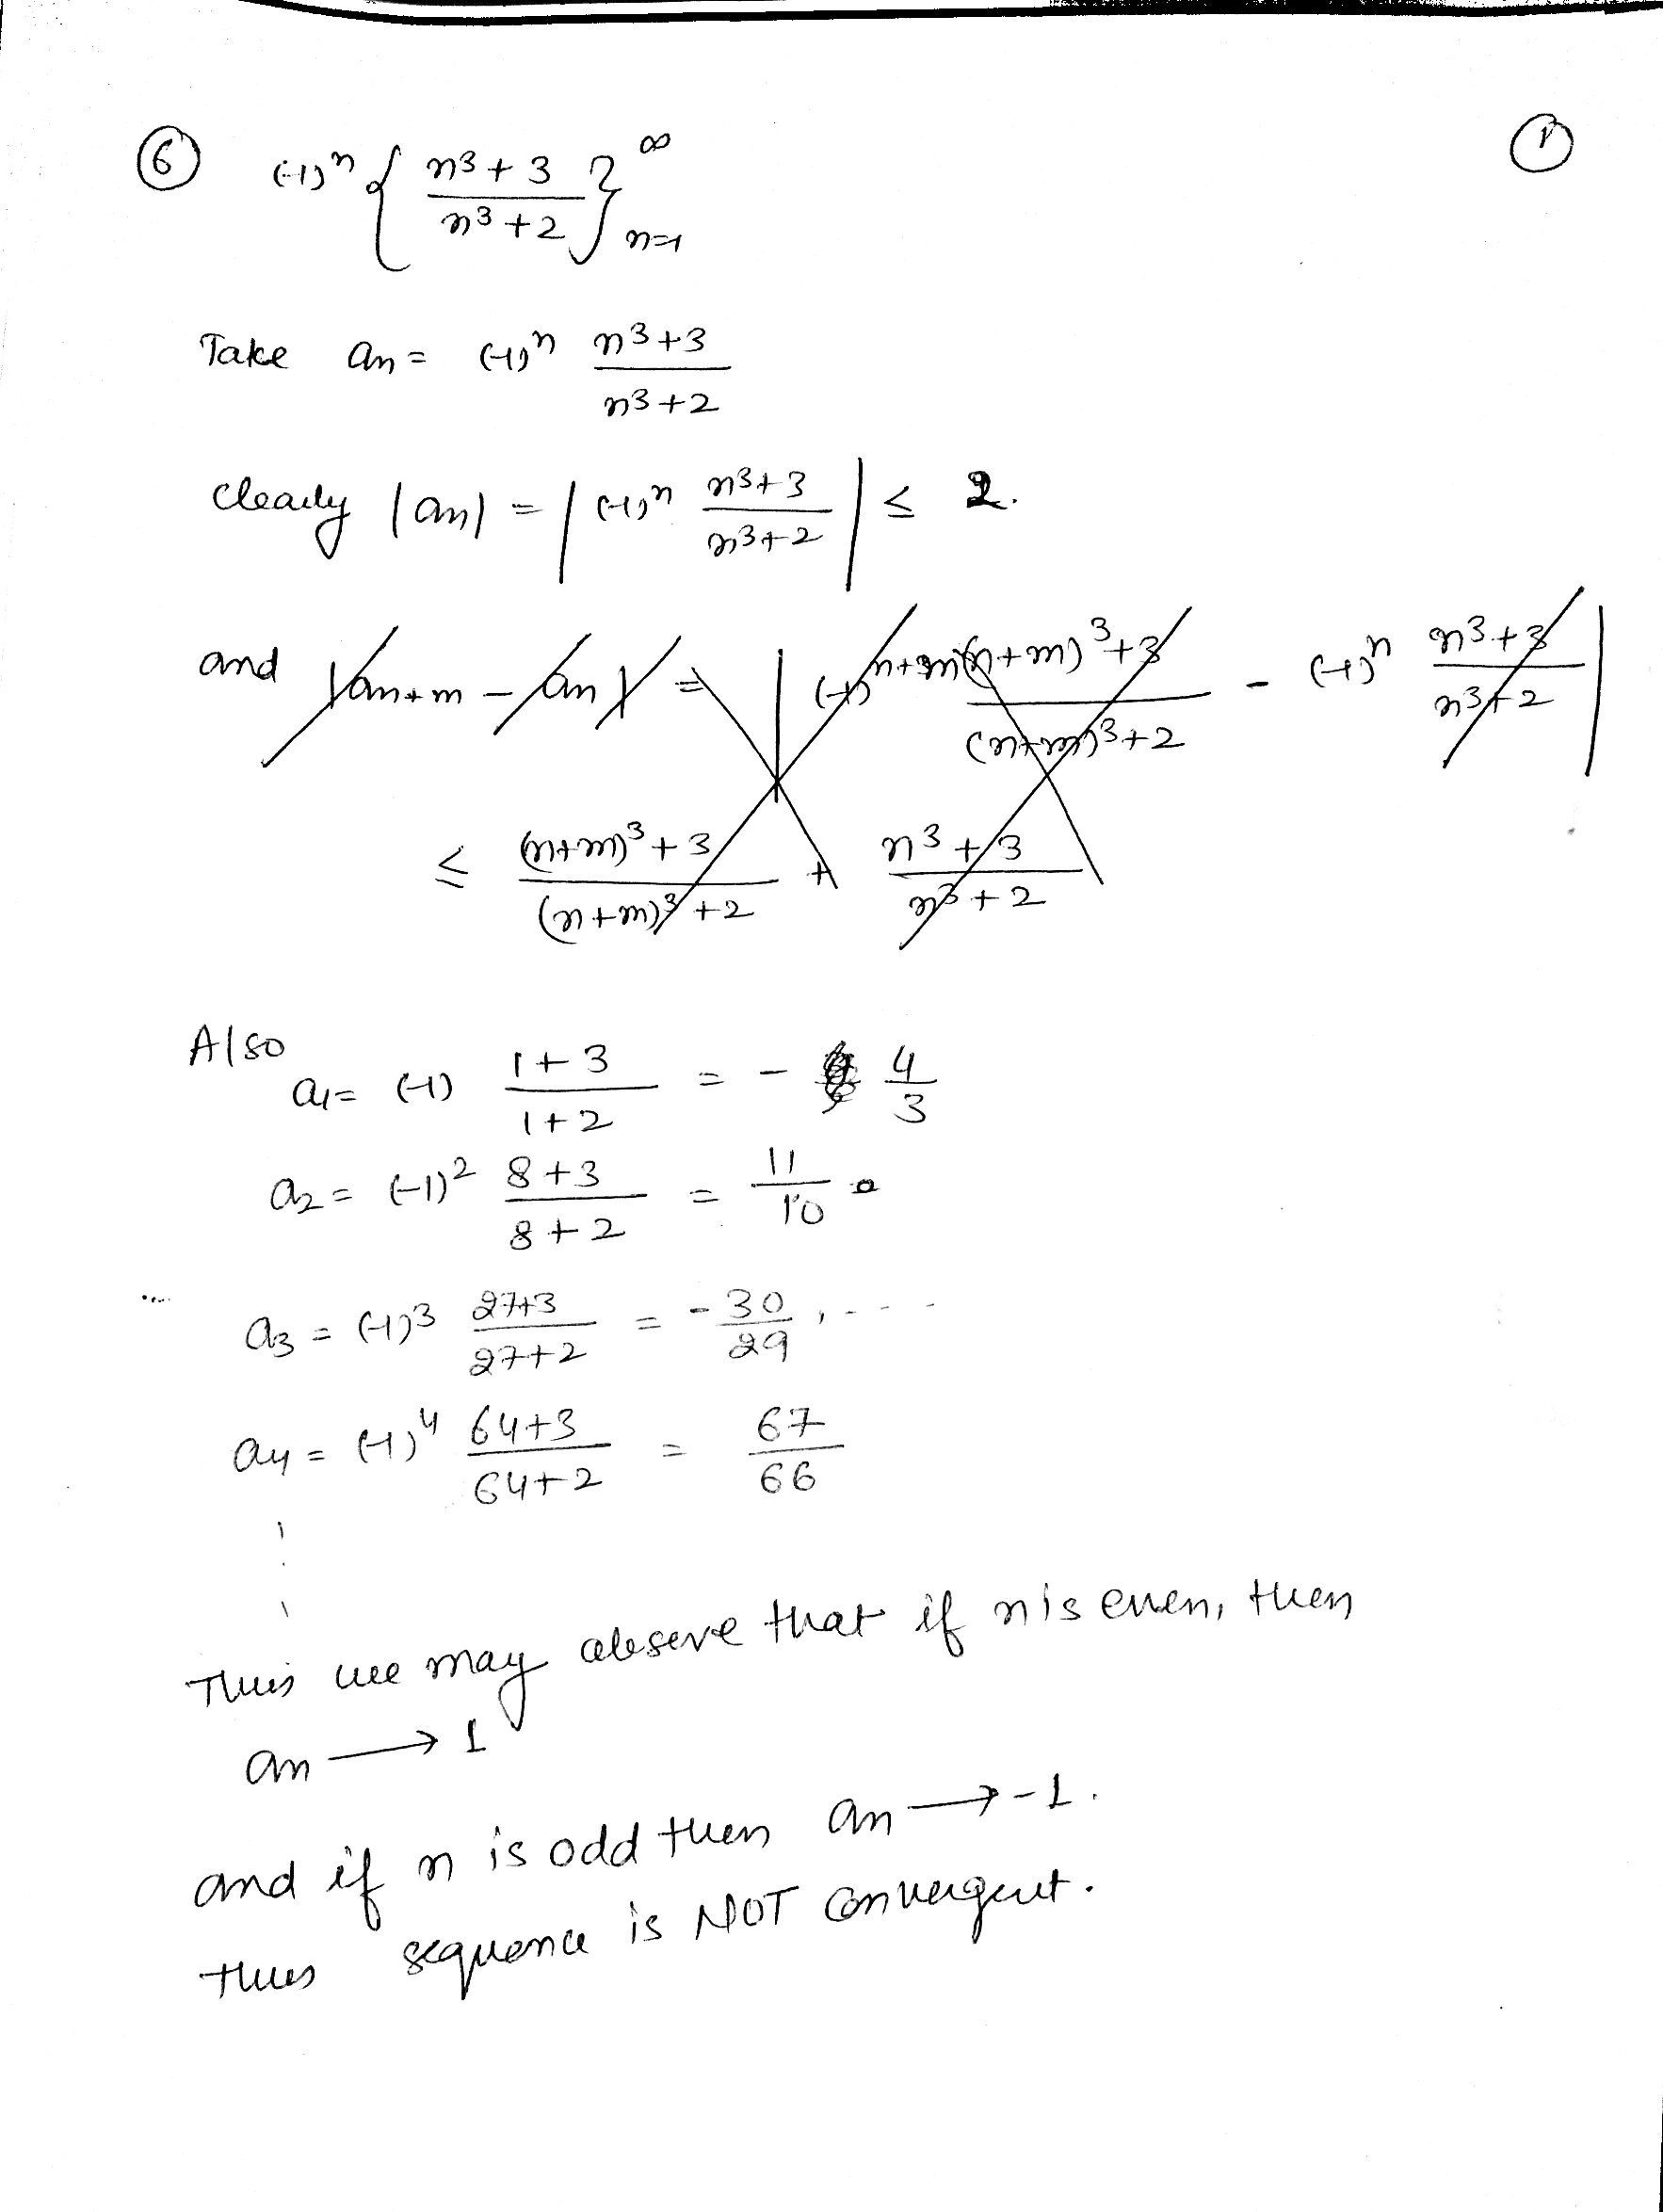 ⑥ (-1)^n { (n^3+3)/(n^3+2) }_{n=1}^∞
①
Take an = (-1)^n (n^3+3)/(n^3+2)
clearly |an| = | (-1)^n (n^3+3)/(n^3+2) | ≤ 2.
and |an+m - an| = | (-1)^{n+m} ((n+m)^3+3)/((n+m)^3+2) - (-1)^n (n^3+3)/(n^3+2) |
≤ ((n+m)^3+3)/((n+m)^3+2) + (n^3+3)/(n^3+2)
Also
a1 = (-1) (1+3)/(1+2) = - 4/3
a2 = (-1)^2 (8+3)/(8+2) = 11/10
a3 = (-1)^3 (27+3)/(27+2) = -30/29 , ----
a4 = (-1)^4 (64+3)/(64+2) = 67/66
Thus we may observe that if n is even, then
an → 1
and if n is odd then an → -1.
thus sequence is NOT convergent.